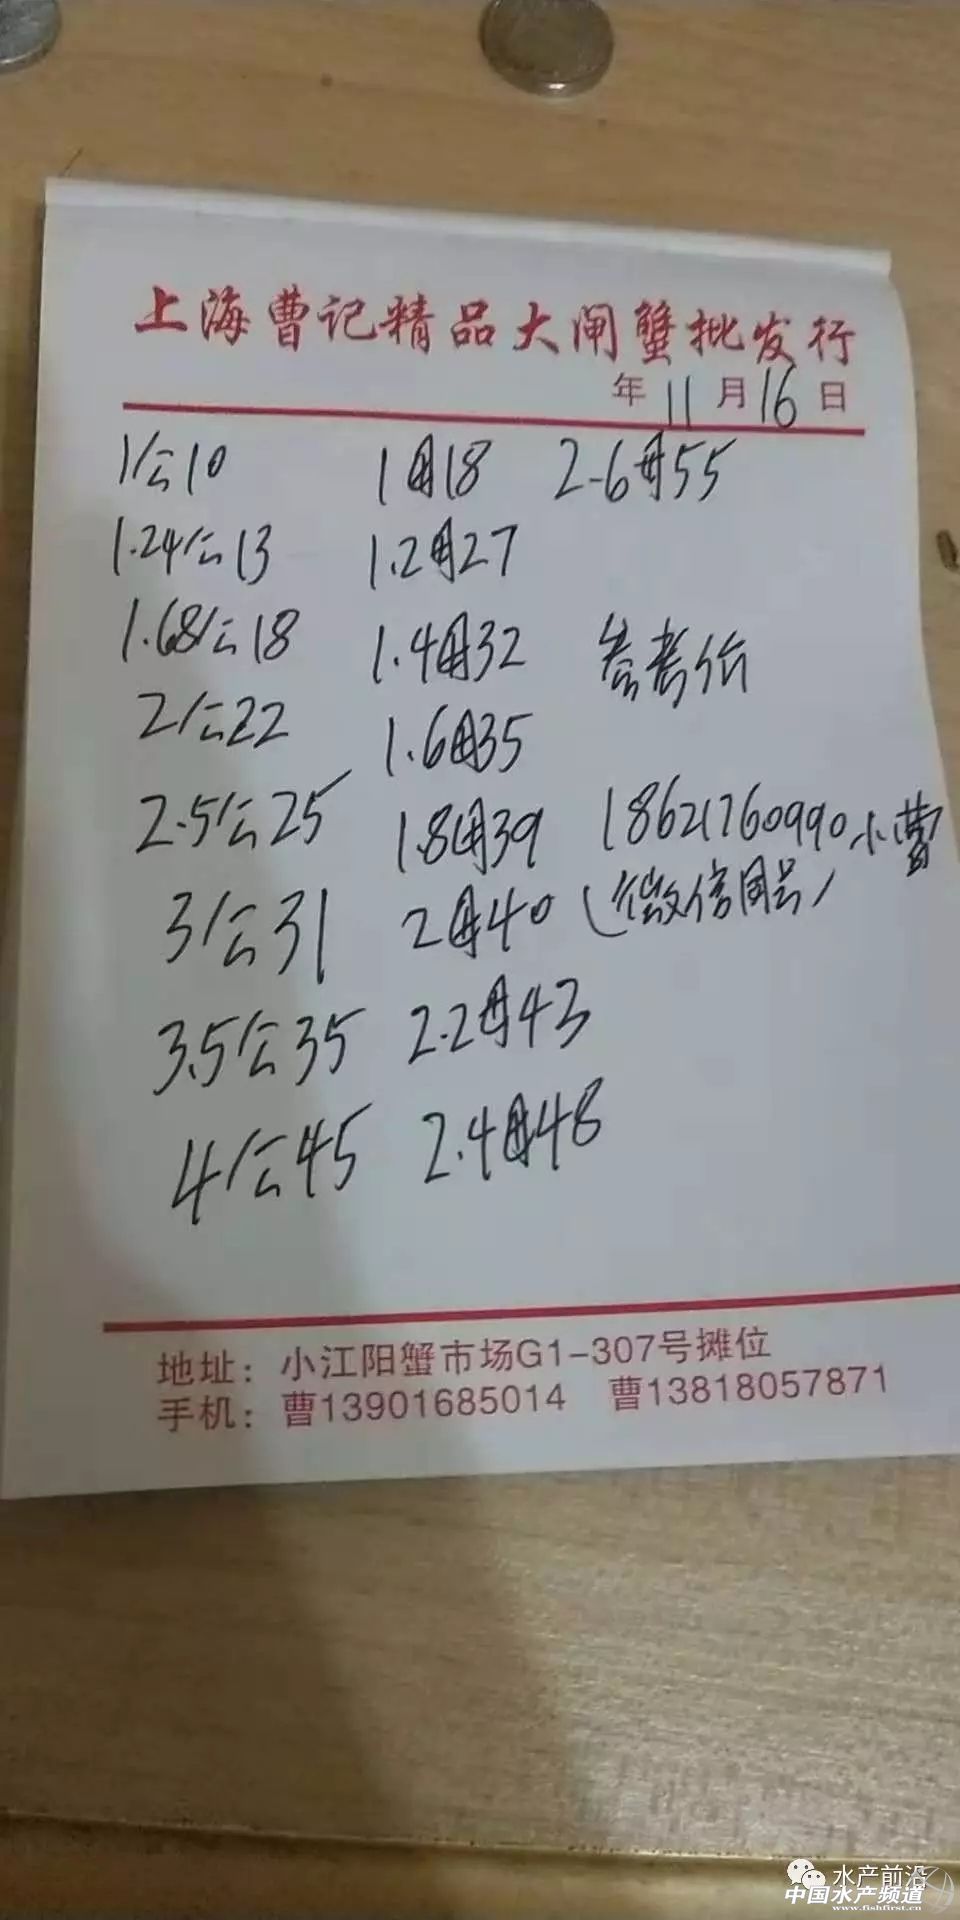 上海曹记精品大闸蟹批发行
年 11 月 16 日
1公10 1母18 2.6母55
1.24公13 1.2母27
1.68公18 1.4母32 参考价
2公22 1.6母35
2.5公25 1.8母39 18621760990小曹
3公31 2母40 (微信同号)
3.5公35 2.2母43
4公45 2.4母48
地址：小江阳蟹市场G1-307号摊位
手机：曹13901685014 曹13818057871
水产前沿
中国水产频道
www.fishfirst.cn